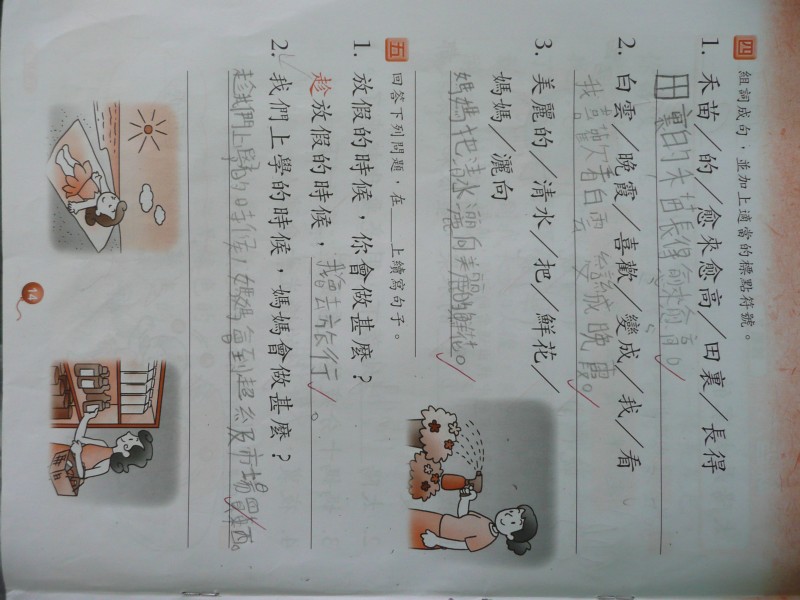 四 組詞成句，並加上適當的標點符號。
1. 禾苗／的／愈來愈高／田裏／長得
田裏的禾苗長得愈來愈高。
2. 白雲／晚霞／喜歡／變成／我／看
我喜歡看白雲變成晚霞。
3. 美麗的／清水／把／鮮花／
媽媽／灑向
媽媽把清水灑向美麗的鮮花。
五 回答下列問題，在＿＿上續寫句子。
1. 放假的時候，你會做甚麼？
趁放假的時候，我會去旅行。
2. 我們上學的時候，媽媽會做甚麼？
趁我們上學的時候，媽媽會到超級市場買東西。
14